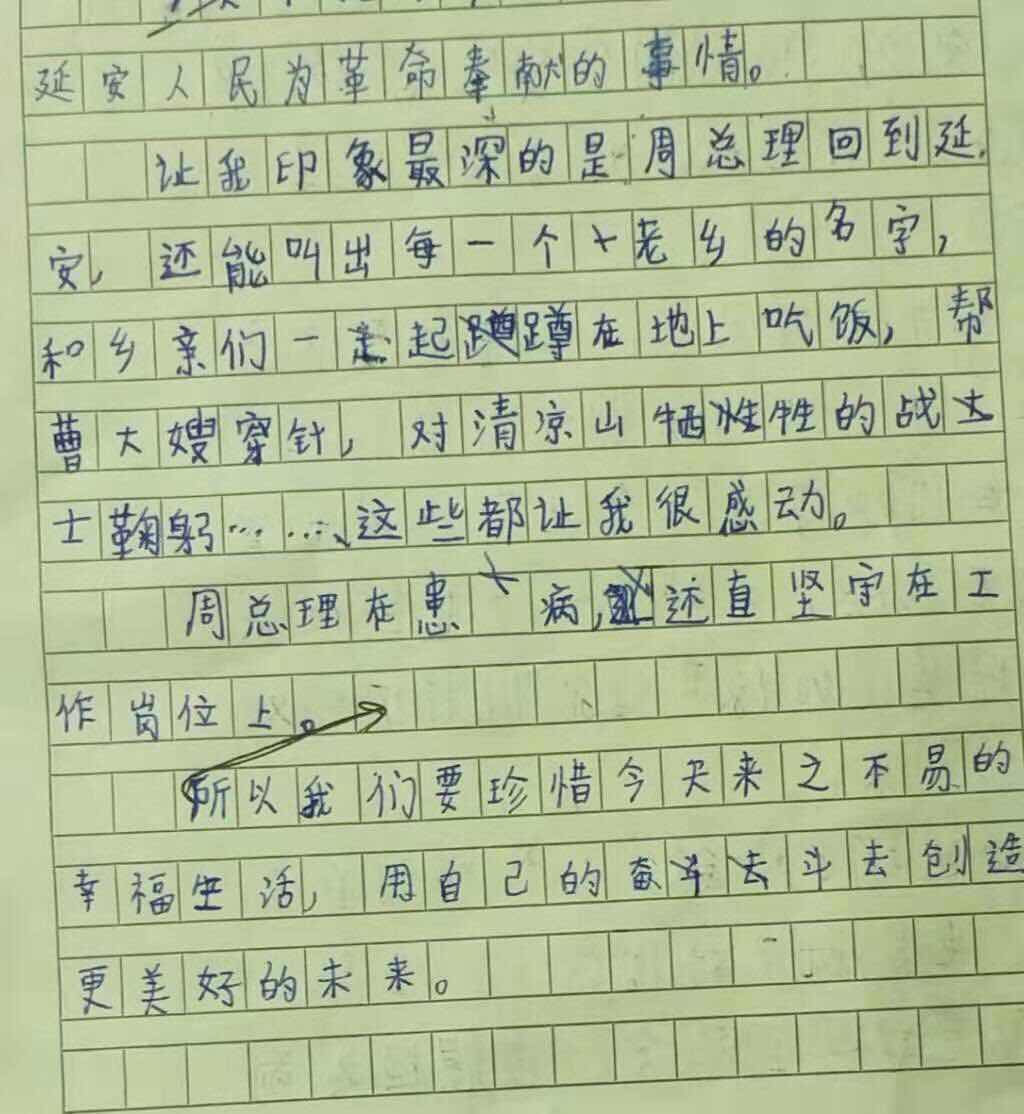 延安人民为革命奉献的事情。
让我印象最深的是周总理回到延
安,还能叫出每一个老乡的名字,
和乡亲们一起蹲在地上吃饭,帮
曹大嫂穿针,对清凉山牺牲的战
士鞠躬……、这些都让我很感动。
周总理在患病,还直坚守在工
作岗位上。
所以我们要珍惜今天来之不易的
幸福生活,用自己的奋斗去创造
更美好的未来。